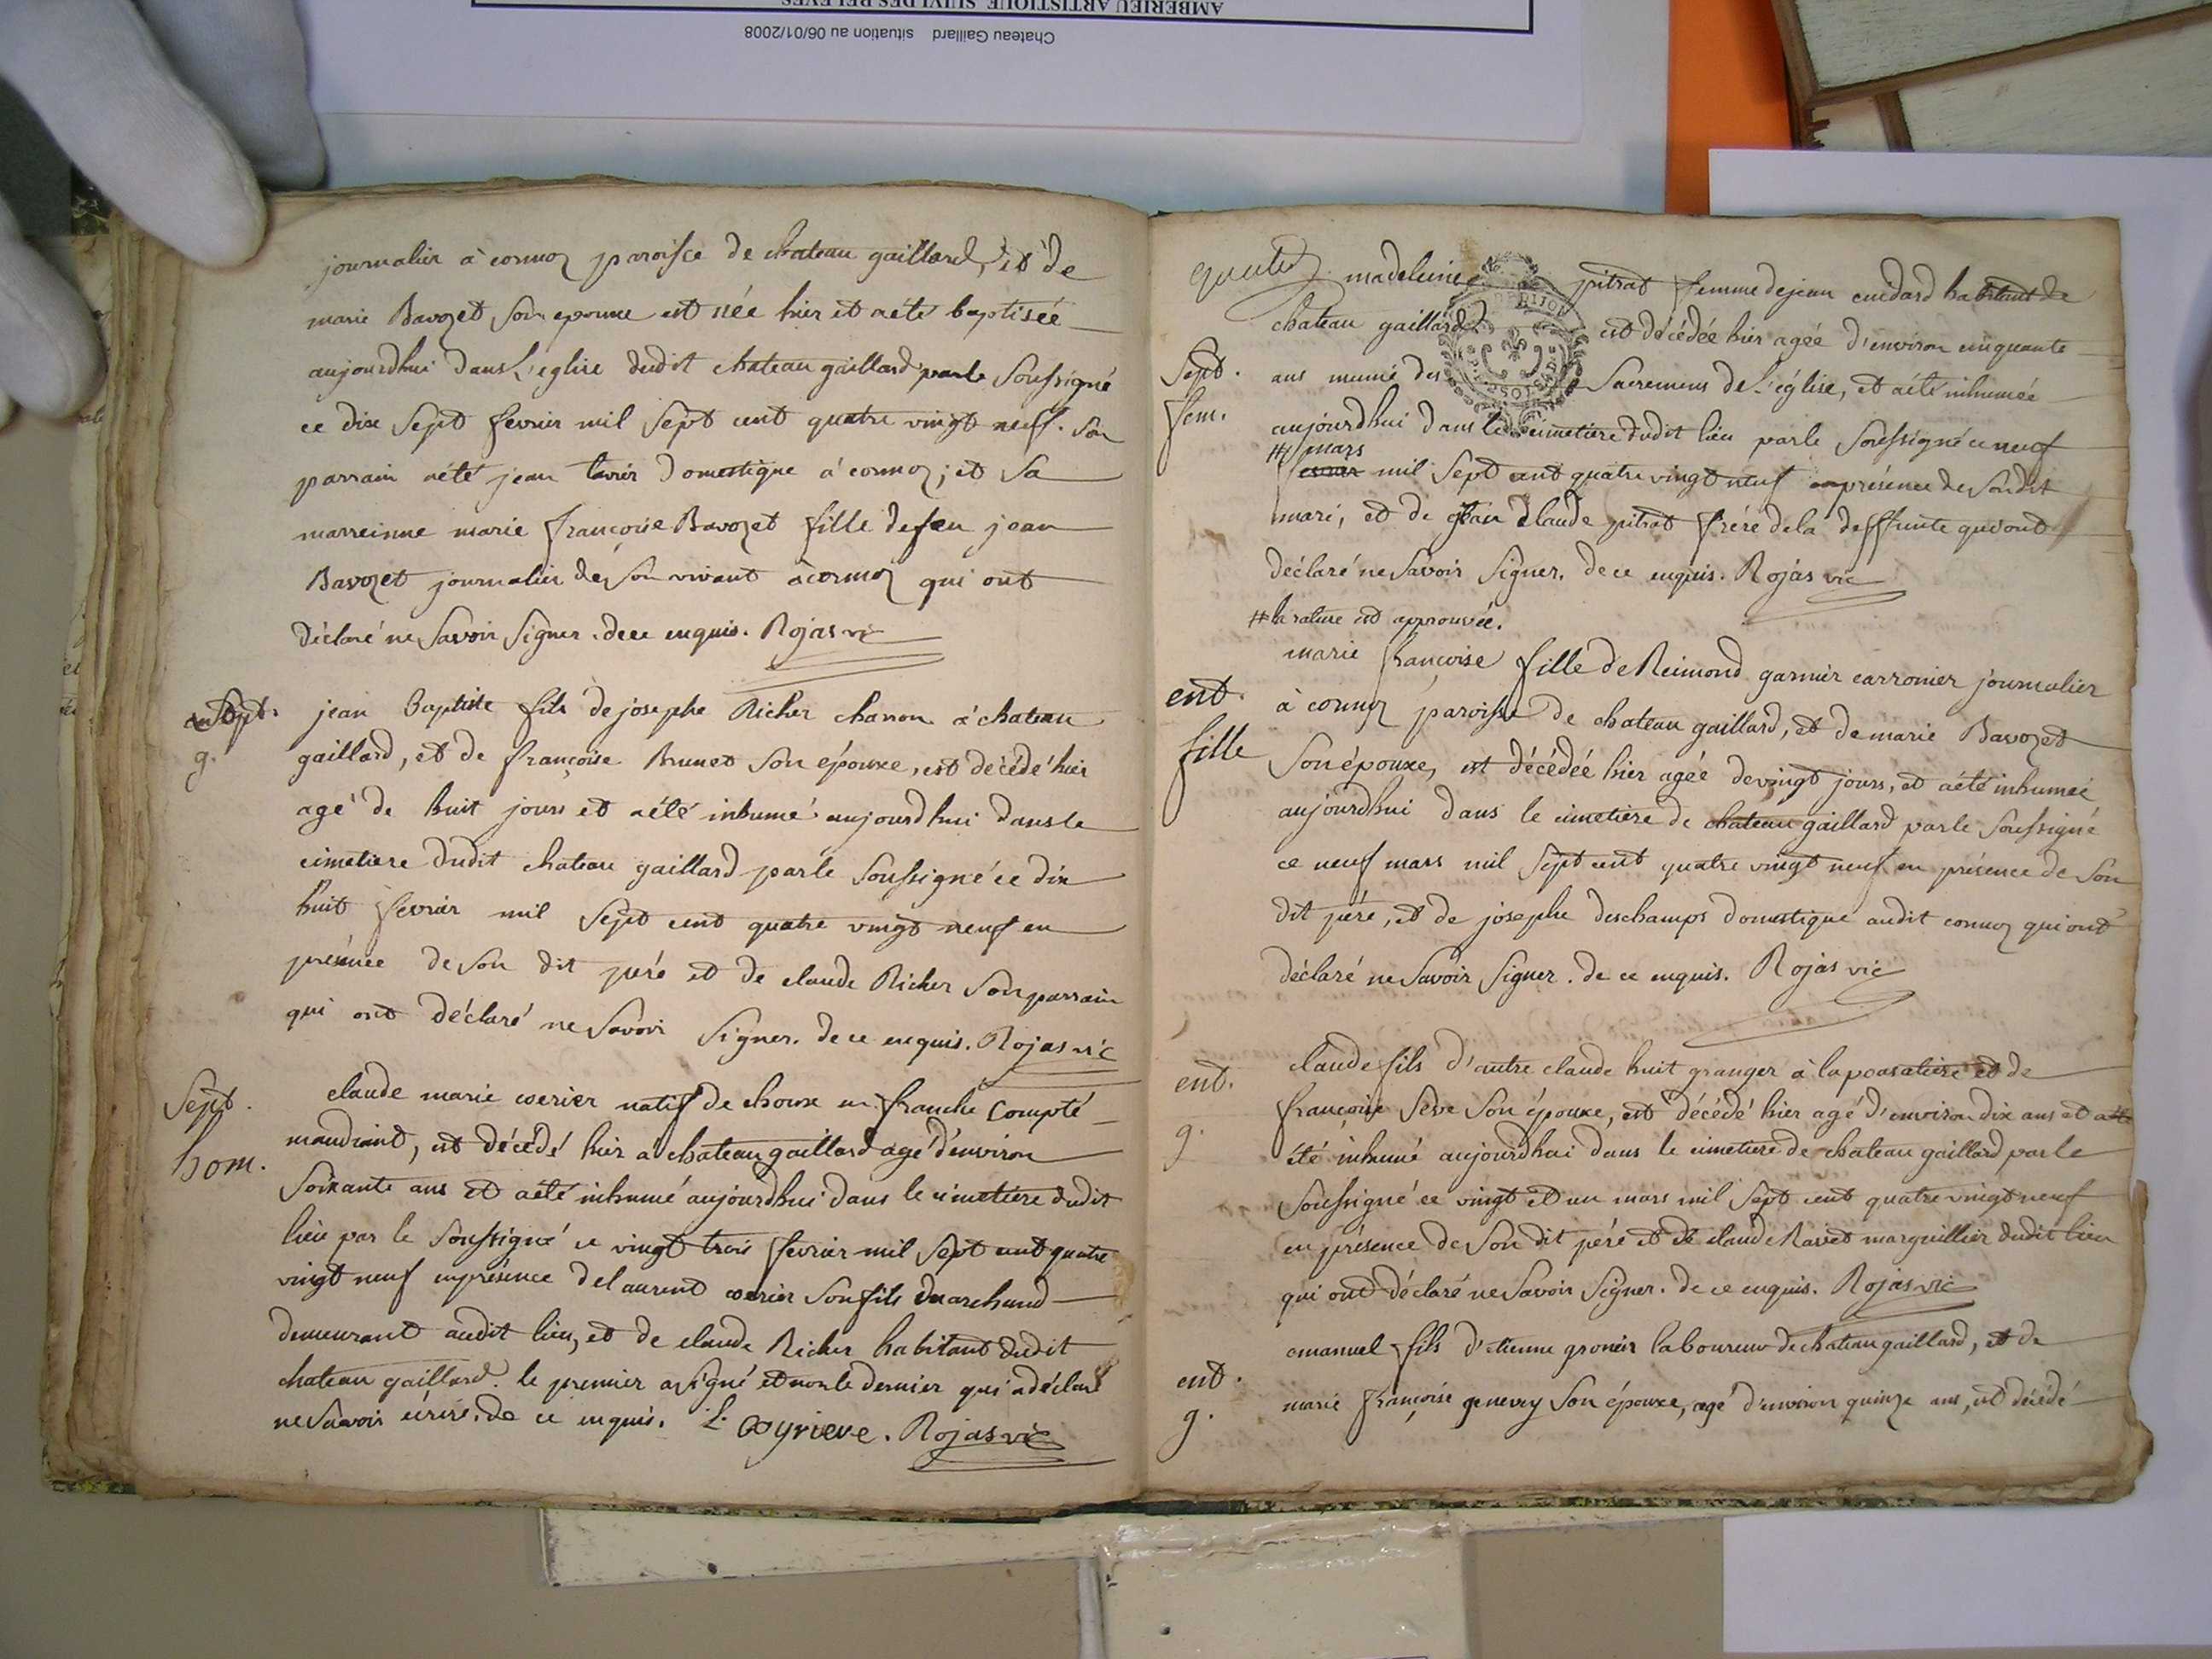 AMBERIEU ARTISTIQUE SUIVI DES RELEVES
Chateau Gaillard situation au 06/01/2008
journalier à cormoz paroisse de chateau gaillard, et de
marie Bavozet son epouse est née hier et a été baptisée
aujourdhui dans l'eglise dudit chateau gaillard par le soussigné
ce dix sept fevrier mil sept cent quatre vingt neuf. son
parrain a été jean domestique à cormoz; et sa
marreinne marie françoise Bavozet fille de feu jean
Bavozet journalier de son vivant à cormoz qui ont
déclaré ne savoir signer. de ce enquis. Rojas vic
Sept.
g.
jean Baptiste fils de josephe Richer charron à chateau
gaillard, et de françoise Brunet son épouxe, est décédé hier
agé de huit jours et a été inhumé aujourdhui dans le
cimetiere dudit chateau gaillard par le soussigné ce dix
huit fevrier mil sept cent quatre vingt neuf en
présence de son dit peré et de claude Richer son parrain
qui ont déclaré ne savoir signer. de ce enquis. Rojas vic
Sept.
hom.
claude marie natif de choux en franche Compté
mandiant, est décédé hier à chateau gaillard agé d'environ
soixante ans et a été inhumé aujourdhui dans le cimetiere dudit
lieu par le soussigné ce vingt trois fevrier mil sept cent quatre
vingt neuf en présence de laurent son fils marchand
demeurant audit lieu, et de claude Richer habitant dudit
chateau gaillard. le premier a signé et non le dernier qui a déclaré
ne savoir ecrire. de ce enquis. L. Rojas vic
madeleine pitrat femme de jean cuidard habitant de
chateau gaillard est décédée hier agée d'environ cinquante
Sept.
fem.
ans munie des sacremens de l'église, et a été inhumée
aujourdhui dans le cimetiere dudit lieu par le soussigné ce neuf
# mars
mil sept cent quatre vingt neuf en présence de son dit
mari, et de jean claude pitrat frére de la deffunte qui ont
déclaré ne savoir signer. de ce enquis. Rojas vic
# la rature est approuvée.
ent.
fille
marie françoise fille de Reimond garnier carronier journalier
à cormoz paroisse de chateau gaillard, et de marie Bavozet
son épouxe, est décédée hier agée de vingt jours, et a été inhumée
aujourdhui dans le cimetiere de chateau gaillard par le soussigné
ce neuf mars mil sept cent quatre vingt neuf en présence de son
dit peré, et de josephe deschamps domestique audit cormoz qui ont
déclaré ne savoir signer. de ce enquis. Rojas vic
ent.
g.
claude fils d'autre claude huit granger à la et de
françoise seve son épouxe, est décédé hier agé d'environ dix ans et a
été inhumé aujourdhui dans le cimetiere de chateau gaillard par le
soussigné ce vingt et un mars mil sept cent quatre vingt neuf
en présence de son dit peré et de claude Ravet marguillier dudit lieu
qui ont déclaré ne savoir signer. de ce enquis. Rojas vic
ent.
g.
emanuel fils d'etienne laboureur de chateau gaillard, et de
marie françoise genevry son épouxe, agé d'environ quinze ans, est décédé